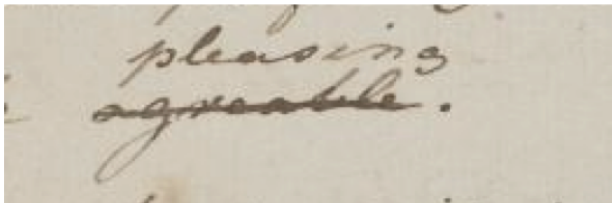 pleasing
agreable.